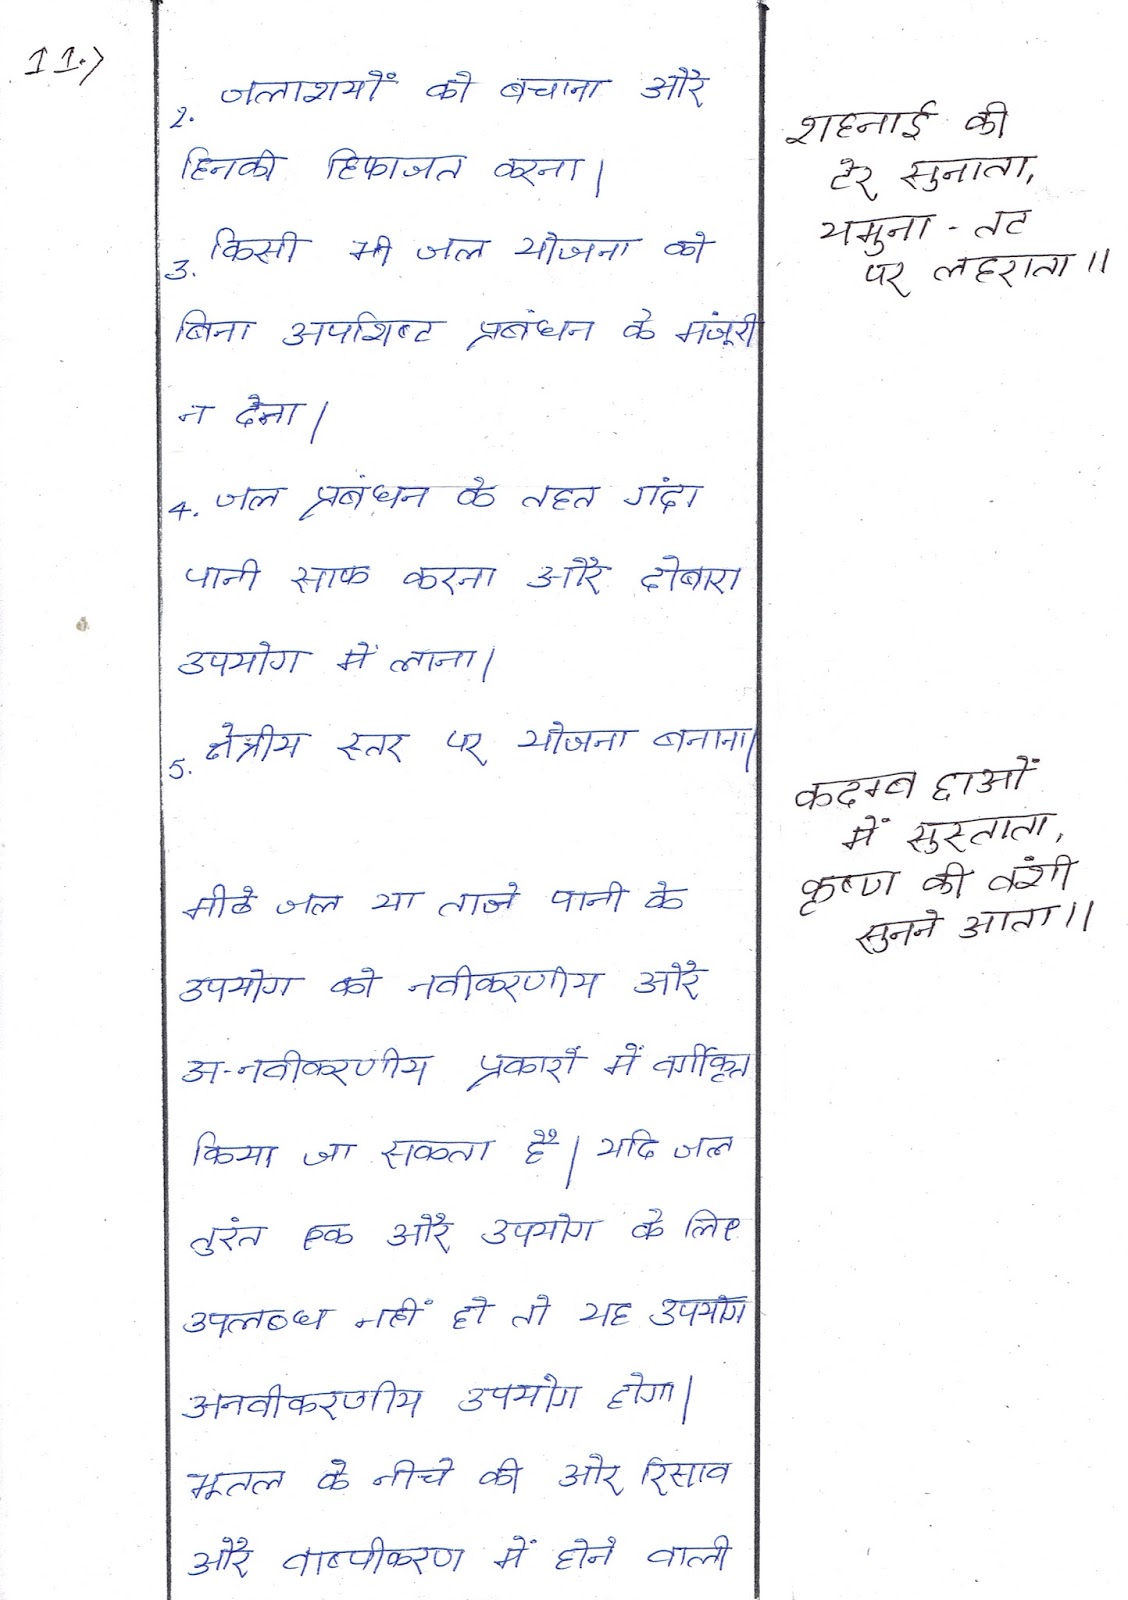 11.)
2. जलाशयों को बचाना और
हिनकी हिफाजत करना।
3. किसी भी जल योजना को
बिना अपशिष्ट प्रबंधन के मंजूरी
न देना।
4. जल प्रबंधन के तहत गंदा
पानी साफ करना और दोबारा
उपयोग में लाना।
5. क्षेत्रीय स्तर पर योजना बनाना।
मीठे जल या ताजे पानी के
उपयोग को नवीकरणीय और
अ-नवीकरणीय प्रकारों में वर्गीकृत
किया जा सकता है। यदि जल
तुरंत एक और उपयोग के लिए
उपलब्ध नहीं हो तो यह उपयोग
अनवीकरणीय उपयोग होगा।
भूतल के नीचे की ओर रिसाव
और वाष्पीकरण में होने वाली
शहनाई की
टेर सुनाता,
यमुना - तट
पर लहराता॥
कदम्ब छाओं
में सुस्ताता,
कृष्ण की वंशी
सुनने आता॥